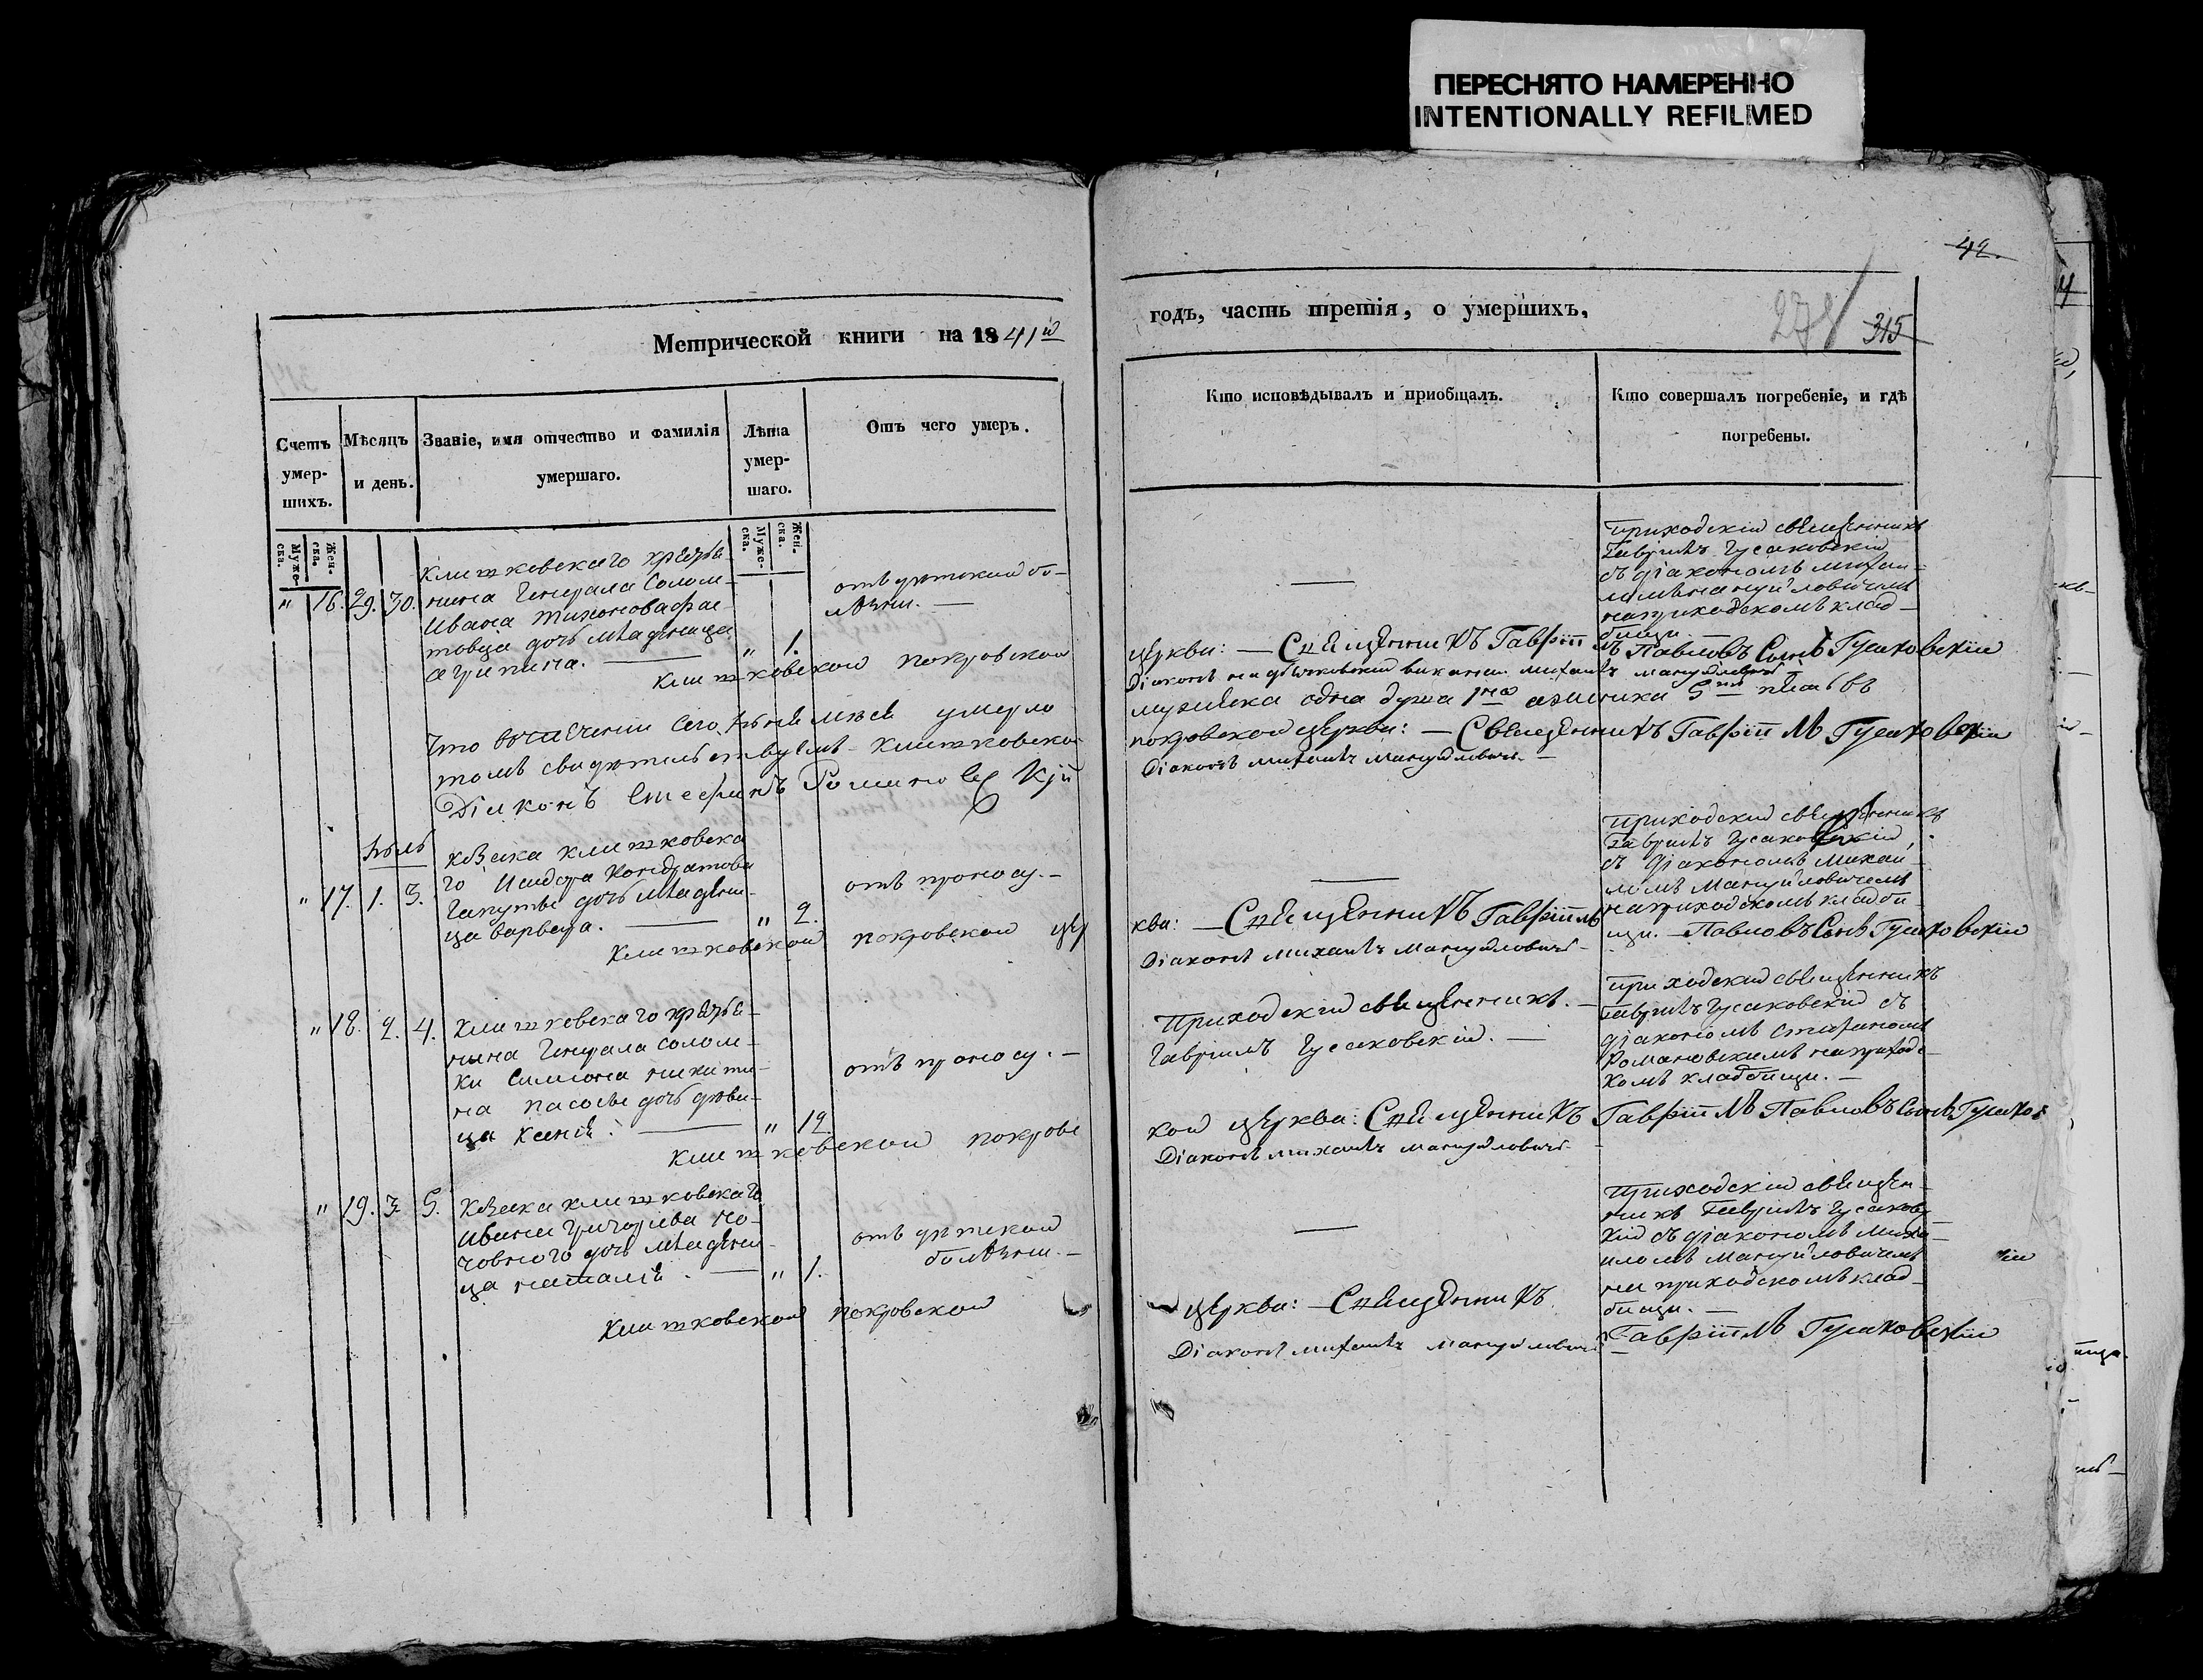 ПЕРЕСНЯТО НАМЕРЕННО
INTENTIONALLY REFILMED
42.
Метрической книги на 1841й
годъ, часть третія, о умершихъ.
278
315
Счетъ умер-
шихъ.
Мѣсяцъ
и день.
Званіе, имя отчество и фамилія
умершаго.
Лѣта
умер-
шаго.
Отъ чего умеръ.
Кто исповѣдывалъ и пріобщалъ.
Кто совершалъ погребеніе, и гдѣ
погребены.
Муже-
ска.
Жен-
ска.
Муже-
ска.
Жен-
ска.
" 16. 29. 30.
Клишковскаго крестья-
нина Генерала Солом-
Ивана Тихонова
дочь младеница
Агрипина. —
" 1.
отъ дѣтской бо-
лѣзни. —
—
Приходскій священникъ
Гавріилъ Гусаковскій
съ діакономъ Михаи-
ломъ Мануйловичемъ
на приходскомъ клад-
бищи
Клишковской Покровской
церкви: — Священникъ Гавріилъ Павловъ Сынъ Гусаковскій
Діаконъ Михаилъ Мануйловичъ
Что въ теченіи сего Іюня мѣсяца умерло
мужеска одна душа 1на а женска 5ть
томъ свидѣтельствуемъ Клишковско
покровской церкви: — Священникъ Гавріилъ Гусаковскій
Діаконъ Стефанъ Романовскій
Діаконъ Михаилъ Мануйловичъ —
Іюль
" 17. 1. 3.
Козака Клишковска
го Исидора Кондратова
дочь младени-
ца Варвара. —
" 2.
отъ проносу. —
—
Приходскій священникъ
Гавріилъ Гусаковскій,
съ діакономъ Михаи-
ломъ Мануйловичемъ
на приходскомъ кладби-
щи. —
Клишковской Покровской цер
кви: — Священникъ Гавріилъ Павловъ Сынъ Гусаковскій
Діаконъ Михаилъ Мануйловичъ —
" 18. 2. 4.
Клишковскаго крестья-
нина Генерала Солом-
ки Симеона Никити-
на дочь дѣви-
ца Ксенія. —
" 12.
отъ проносу. —
Приходскій священникъ. —
Гавріилъ Гусаковскій. —
Приходскій священникъ
Гавріилъ Гусаковскій съ
діакономъ Стефаномъ
Романовскимъ на приходс-
комъ кладбищи. —
Клишковской Покровс
кой церкви: Священникъ Гавріилъ Павловъ Сынъ Гусаков
Діаконъ Михаилъ Мануйловичъ —
" 19. 3. 5.
Козака Клишковскаго
Ивана Григорієва
дочь младени-
ца Наталія. —
" 1.
отъ дѣтской
болѣзни. —
—
Приходскій священ-
никъ Гавріилъ Гусаковс
кій съ діакономъ Миха-
иломъ Мануйловичемъ
на приходскомъ клад-
бищи. —
Клишковской Покровской
церкви: — Священникъ Гавріилъ Гусаковскій
Діаконъ Михаилъ Мануйловичъ